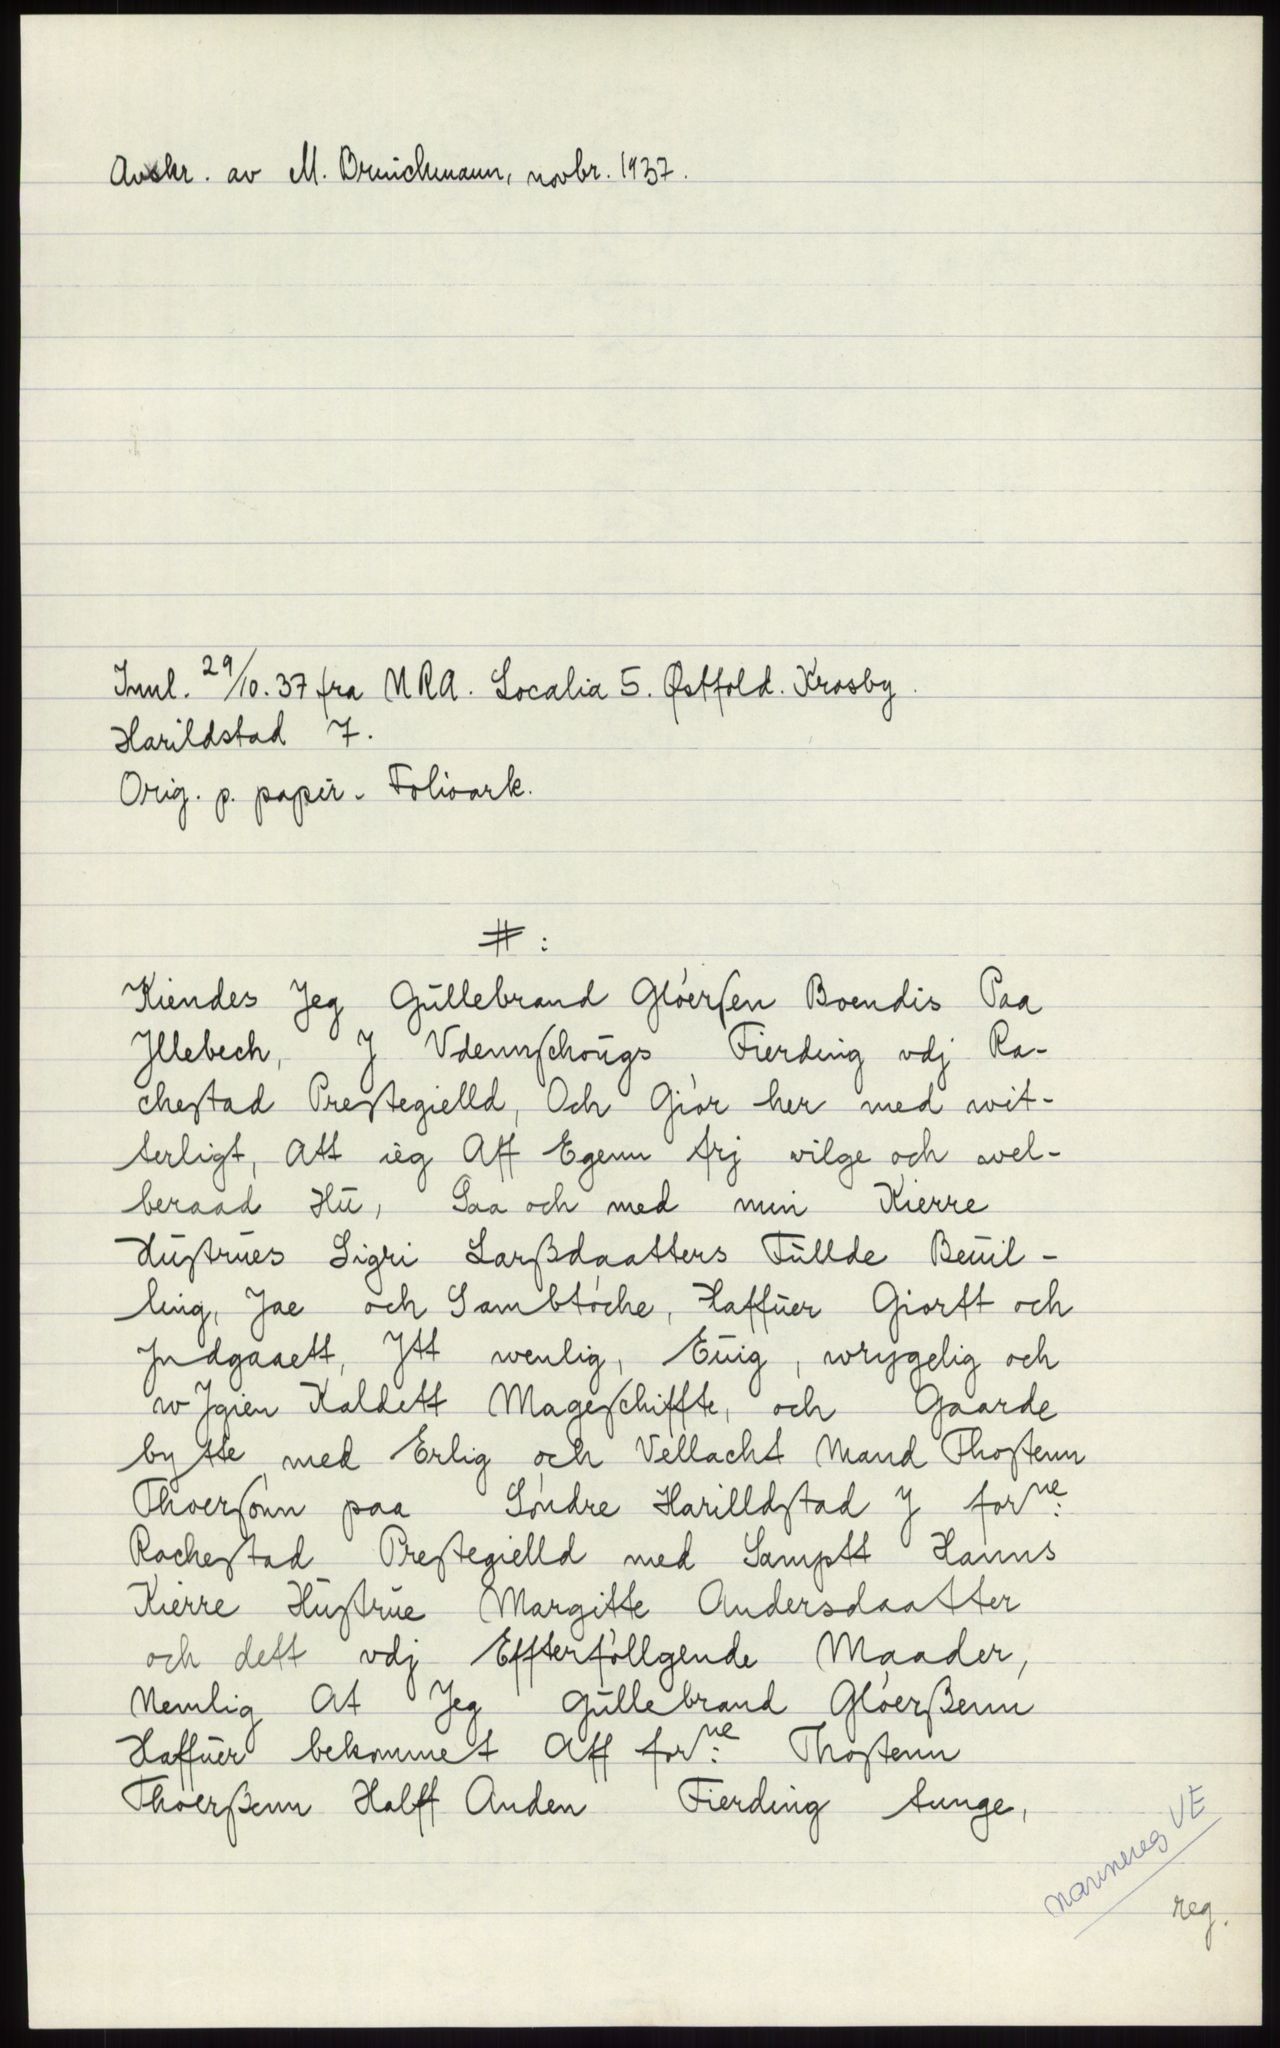 Avskr. av M. Brinchmann, novbr. 1937.
Innl. 29/10.37 fra NRA. Localia 5. Østfold. Krosby.
Harildstad 7.
Orig. p. papir. Folioark.
#:
Kiendes Jeg Gŭllebrand Glóersen Boendis Paa
Jllebech, J Vdennschoŭgs Fierding vdj Ra-
chestad Prestegielld, Och Giór her med wit-
terligt, Att ieg Aff Egenn frj vilge och wel-
beraad Hŭ, Saa och med min Kierre
Hŭstrŭes Sigri Larßdaatters Fŭllde Beŭil-
ling, Jae och Sambtóche, Haffŭer Giorft och
Jndgaaett, Jtt wenlig, Eŭig, wrygelig och
w Jgien Kaldett Mageschiffte, och Gaarde
bytte med Erlig och Vellacht Mand Thostenn
Thoersónn paa Sóndre Harilldstad J forne:
Rachestad Prestegielld med Samptt Hanns
Kierre Hŭstrŭe Margitte Andersdaatter
och dett vdj Effterfóllgende Maader,
Nemlig At Jeg Gŭllebrand Glóerßenn
Haffŭer bekommet Aff forne: Thostenn
Thoerßenn Halff Anden Fierding tunge,
navnereg VE
reg.